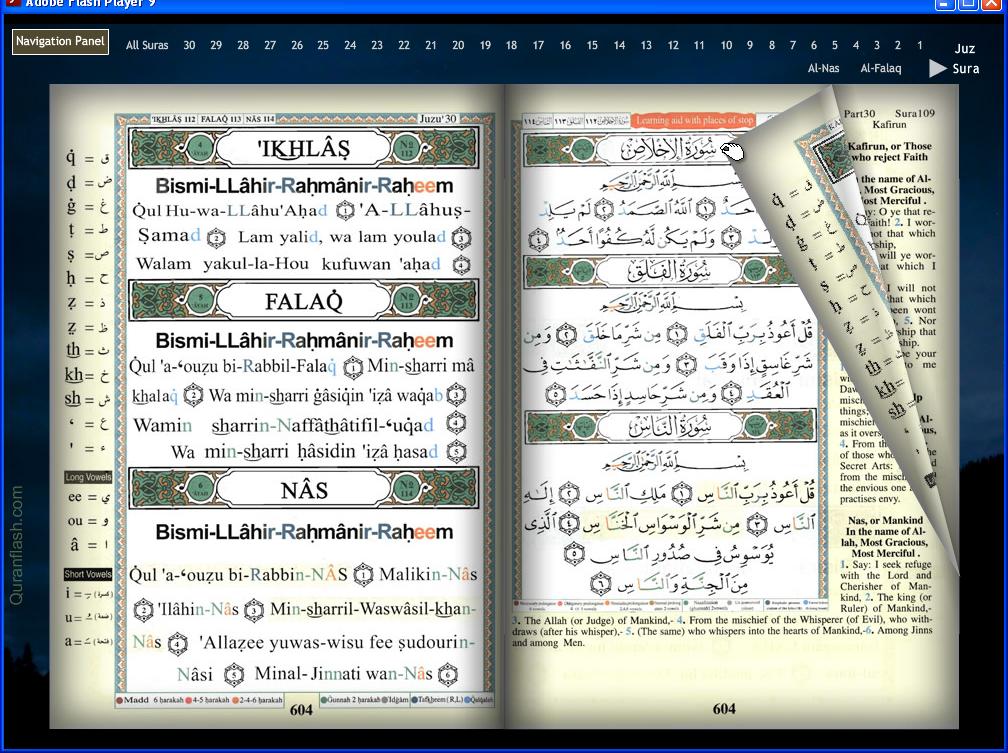 Adobe Flash Player 9
Navigation Panel
All Suras 30 29 28 27 26 25 24 23 22 21 20 19 18 17 16 15 14 13 12 11 10 9 8 7 6 5 4 3 2 1 Juz
Al-Nas Al-Falaq Sura
'IKHLÂṢ 112 FALAQ̇ 113 NÂS 114 Juzu' 30
'IKHLÂṢ
Bismi-LLâhir-Raḥmânir-Raḥeem
Q̇ul Hu-wa-LLâhu'Aḥad 1 'A-LLâhuṣ-
Ṣamad 2 Lam yalid, wa lam youlad 3
Walam yakul-la-Hou kufuwan 'aḥad 4
FALAQ̇
Bismi-LLâhir-Raḥmânir-Raḥeem
Q̇ul 'a-ʿouẓu bi-Rabbil-Falaq̇ 1 Min-sharri mâ
khalaq̇ 2 Wa min-sharri ġâsiqin 'iẓâ waqab 3
Wamin sharrin-Naffâthâtifil-ʿuq̇ad 4
Wa min-sharri ḥâsidin 'iẓâ ḥasad 5
NÂS
Bismi-LLâhir-Raḥmânir-Raḥeem
Q̇ul 'a-ʿouẓu bi-Rabbin-NÂS 1 Malikin-Nâs
2 'Ilâhin-Nâs 3 Min-sharril-Waswâsil-khan-
Nâs 4 'Allaẓee yuwas-wisu fee ṣudourin-
Nâsi 5 Minal-Jinnati wan-Nâs 6
Madd 6 ḥarakah 4-5 ḥarakah 2-4-6 ḥarakah Gunnah 2 ḥarakah Idġâm Tafkheem (R,L) Qalqalah
604
q̇ = ق
ḍ = ض
ġ = غ
ṭ = ط
ṣ = ص
ḥ = ح
ẓ = ذ
ẓ = ظ
th = ث
kh = خ
sh = ش
ʿ = ع
' = ء
Long Vowels
ee = ي
ou = و
â = ا
Short Vowels
i =
u =
a =
Quranflash.com
Learning aid with places of stop
سُورَةُ الإِخْلَاصِ
بِسْمِ اللَّهِ الرَّحْمَٰنِ الرَّحِيمِ
أَحَدٌ ١ اللَّهُ الصَّمَدُ ٢ لَمْ يَلِدْ
يُولَدْ ٣ وَلَمْ يَكُن لَّهُ كُفُوًا أَحَدٌ ٤
سُورَةُ الْفَلَقِ
بِسْمِ اللَّهِ الرَّحْمَٰنِ الرَّحِيمِ
قُلْ أَعُوذُ بِرَبِّ الْفَلَقِ ١ مِن شَرِّ مَا خَلَقَ ٢ وَمِن
شَرِّ غَاسِقٍ إِذَا وَقَبَ ٣ وَمِن شَرِّ النَّفَّاثَاتِ فِي
الْعُقَدِ ٤ وَمِن شَرِّ حَاسِدٍ إِذَا حَسَدَ ٥
سُورَةُ النَّاسِ
بِسْمِ اللَّهِ الرَّحْمَٰنِ الرَّحِيمِ
قُلْ أَعُوذُ بِرَبِّ النَّاسِ ١ مَلِكِ النَّاسِ ٢ إِلَٰهِ
النَّاسِ ٣ مِن شَرِّ الْوَسْوَاسِ الْخَنَّاسِ ٤ الَّذِي
يُوَسْوِسُ فِي صُدُورِ النَّاسِ ٥
مِنَ الْجِنَّةِ وَالنَّاسِ ٦
3. The Allah (or Judge) of Mankind,- 4. From the mischief of the Whisperer (of Evil), who with-
draws (after his whisper),- 5. (The same) who whispers into the hearts of Mankind,-6. Among Jinns
and among Men.
604
Part30 Sura109
Kafirun
Kafirun, or Those
who reject Faith
the name of Al-
Most Gracious,
Most Merciful .
O ye that re-
2. I wor-
not that which
will ye wor-
that which I
I will not
that which
been wont
5. Nor
ship that
be your
to me
things,
mischief
as it overs
4. From the
of those who
Secret Arts:
from the misch
the envious one
practises envy.
Nas, or Mankind
In the name of Al-
lah, Most Gracious,
Most Merciful .
1. Say: I seek refuge
with the Lord and
Cherisher of Man-
kind, 2. The king (or
Ruler) of Mankind,-
q̇ = ق
ḍ = ض
ġ = غ
ṭ = ط
ṣ = ص
ḥ = ح
ẓ = ذ
ẓ =
th =
kh =
sh =